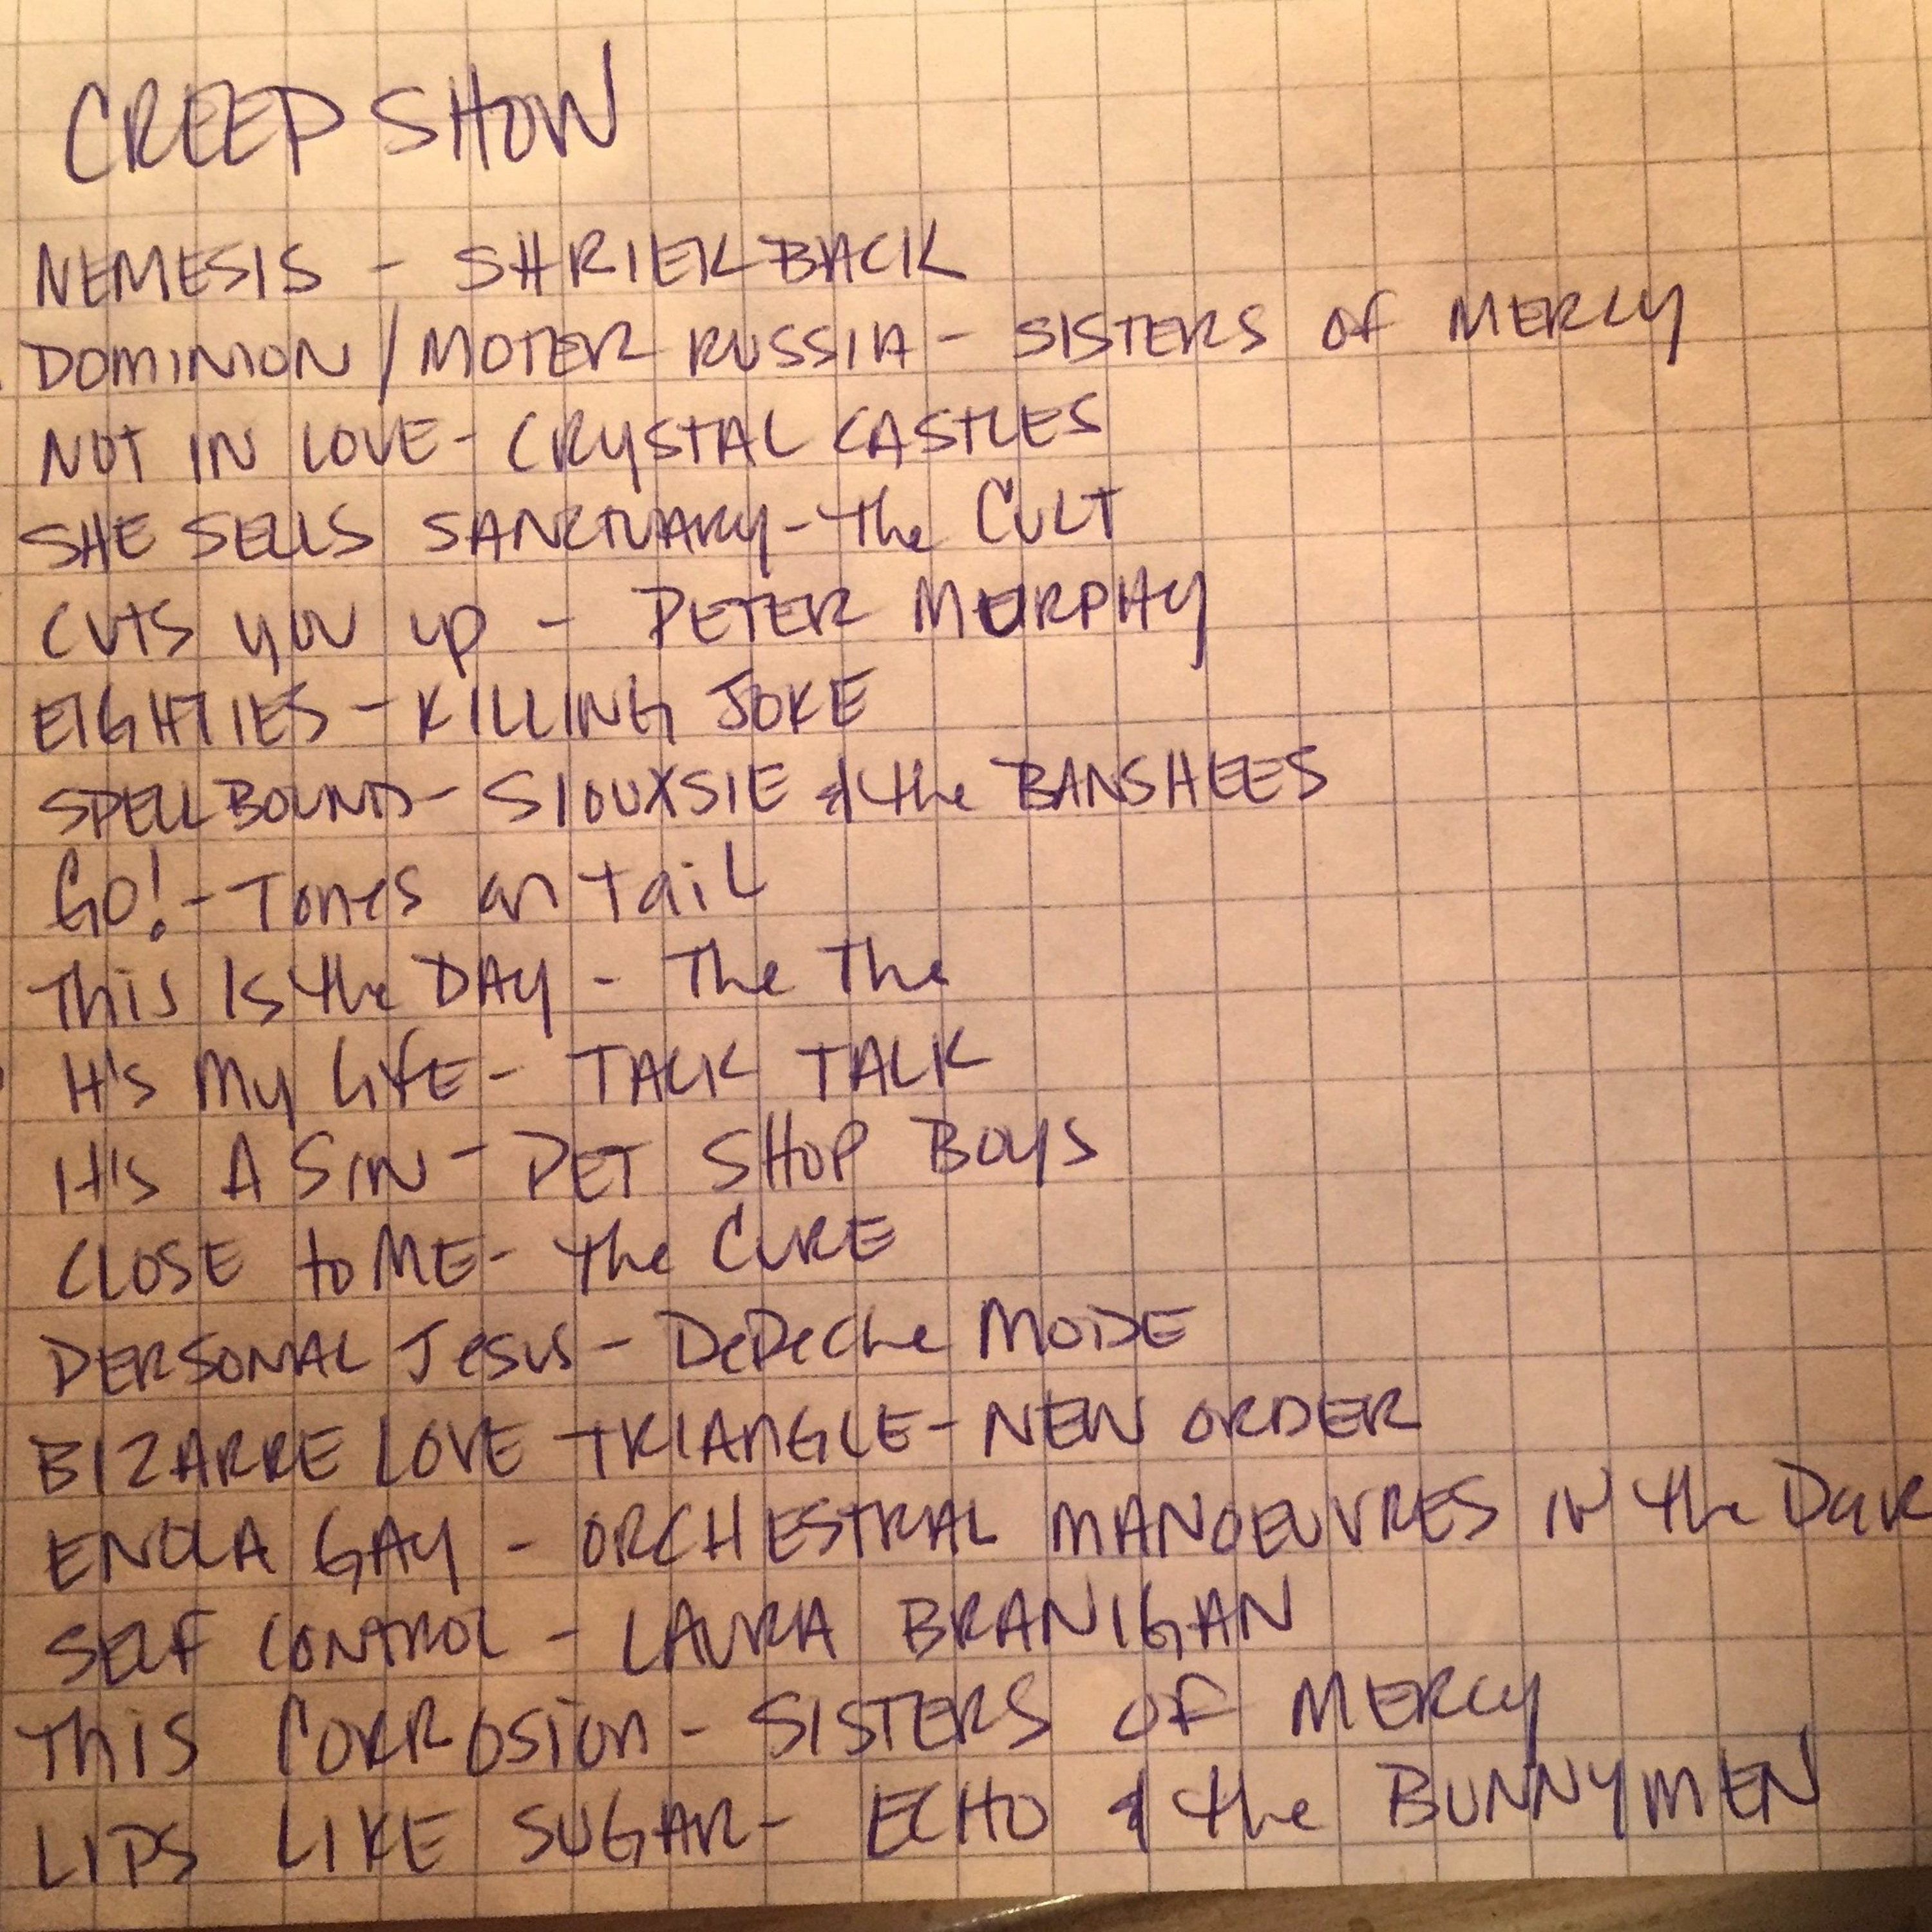 CREEP SHOW
NEMESIS - SHRIEKBACK
DOMINION / MOTER RUSSIA - SISTERS OF MERCY
NOT IN LOVE - CRYSTAL CASTLES
SHE SELLS SANCTUARY - the CULT
CUTS YOU UP - PETER MURPHY
EIGHTIES - KILLING JOKE
SPELLBOUND - SIOUXSIE & the BANSHEES
GO! - Tones on tail
This Is the DAY - The The
It's My Life - TALK TALK
It's A SIN - PET SHOP BOYS
CLOSE to ME - the CURE
PERSONAL Jesus - Depeche MODE
BIZARRE LOVE TRIANGLE - NEW ORDER
ENOLA GAY - ORCHESTRAL MANOEUVRES IN the Dark
SELF CONTROL - LAURA BRANIGAN
This Corrosion - SISTERS OF MERCY
LIPS LIKE SUGAR - ECHO & the BUNNYMEN